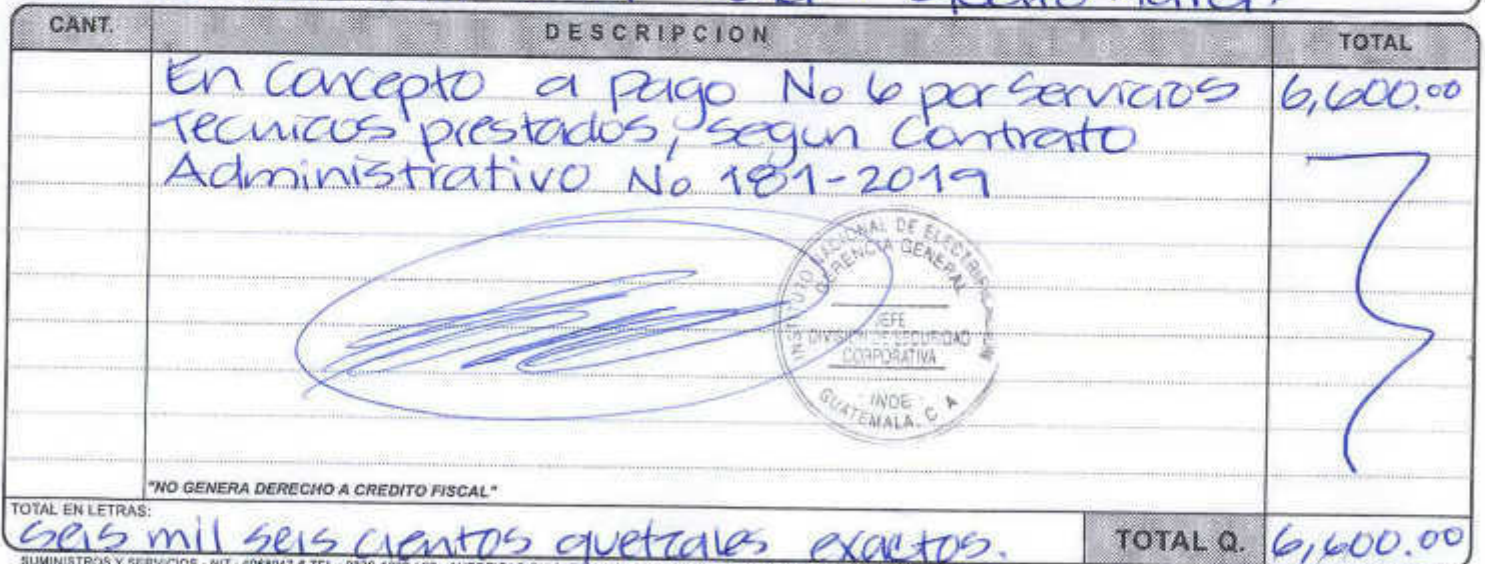 CANT. DESCRIPCION TOTAL
En Concepto a pago No 6 por Servicios 6,600.00
Tecnicos prestados, segun Contrato
Administrativo No 181-2019
INSTITUTO NACIONAL DE ELECTRIFICACION
GERENCIA GENERAL
JEFE
DIVISION DE SEGURIDAD
CORPORATIVA
INDE
GUATEMALA, C. A.
"NO GENERA DERECHO A CREDITO FISCAL"
TOTAL EN LETRAS:
Seis mil seis cientos quetzales exactos. TOTAL Q. 6,600.00
SUMINISTROS Y SERVICIOS - NIT.: